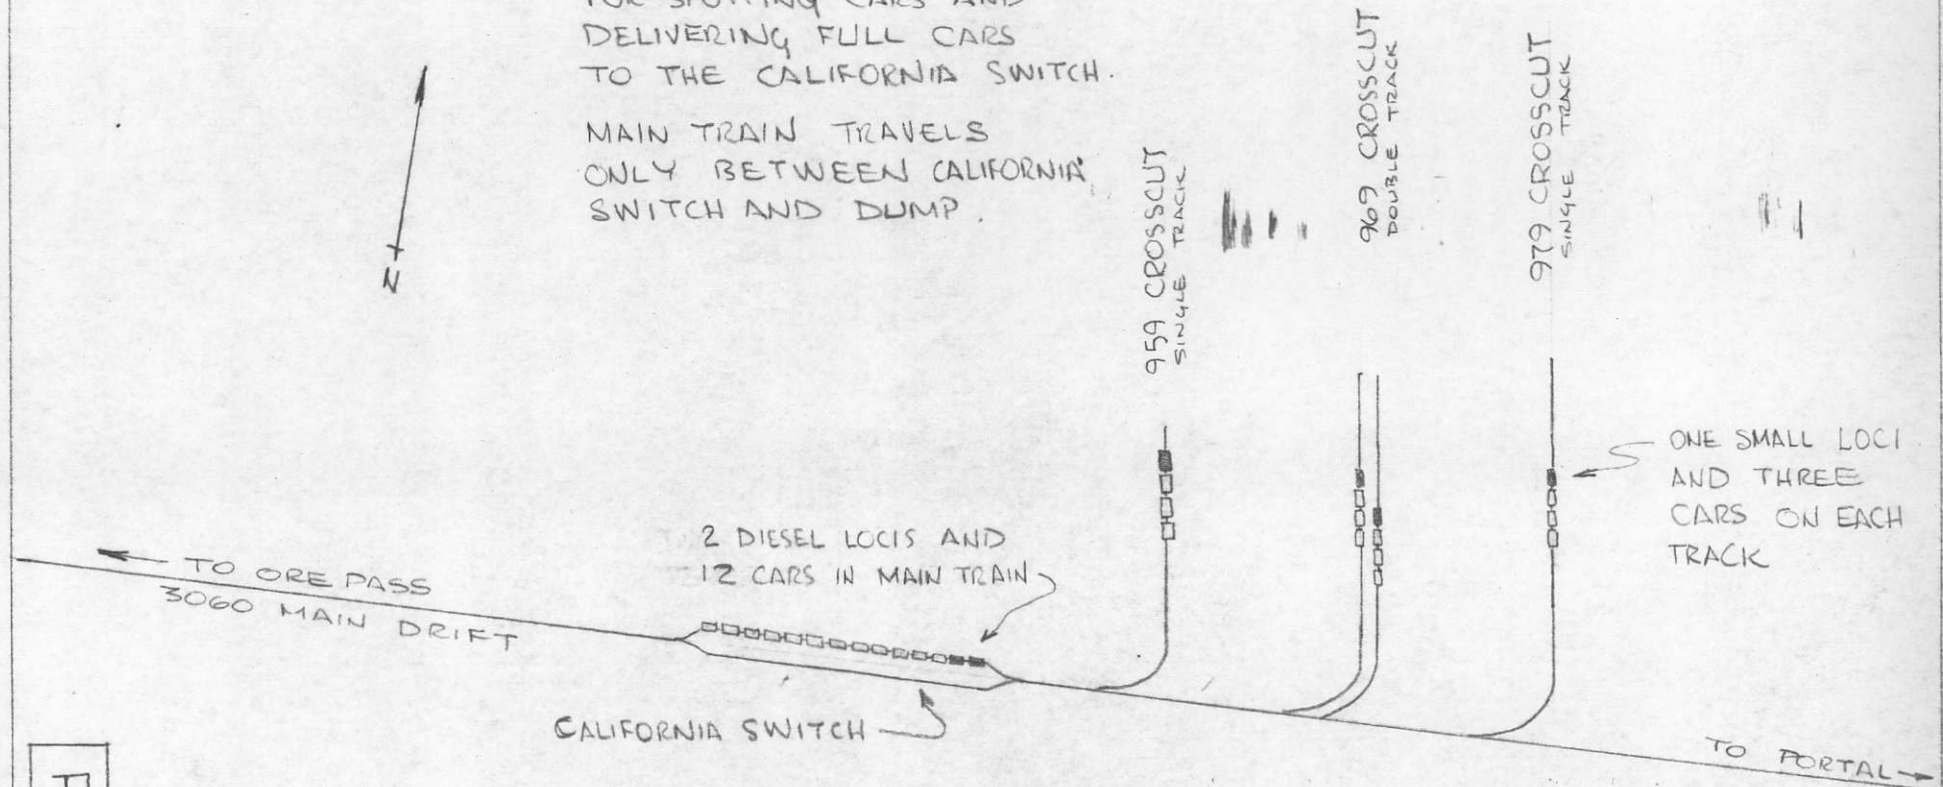 FOR SPOTTING CARS AND
DELIVERING FULL CARS
TO THE CALIFORNIA SWITCH.
MAIN TRAIN TRAVELS
ONLY BETWEEN CALIFORNIA
SWITCH AND DUMP.
N
959 CROSSCUT
SINGLE TRACK
969 CROSSCUT
DOUBLE TRACK
979 CROSSCUT
SINGLE TRACK
ONE SMALL LOCI
AND THREE
CARS ON EACH
TRACK
2 DIESEL LOCIS AND
12 CARS IN MAIN TRAIN
TO ORE PASS
3060 MAIN DRIFT
CALIFORNIA SWITCH
TO PORTAL